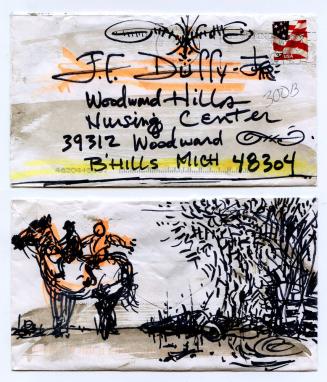 J.F. Duffy
300B
Woodward Hills
Nursing Center
39312 Woodward
B'HILLS MICH 48304
USA